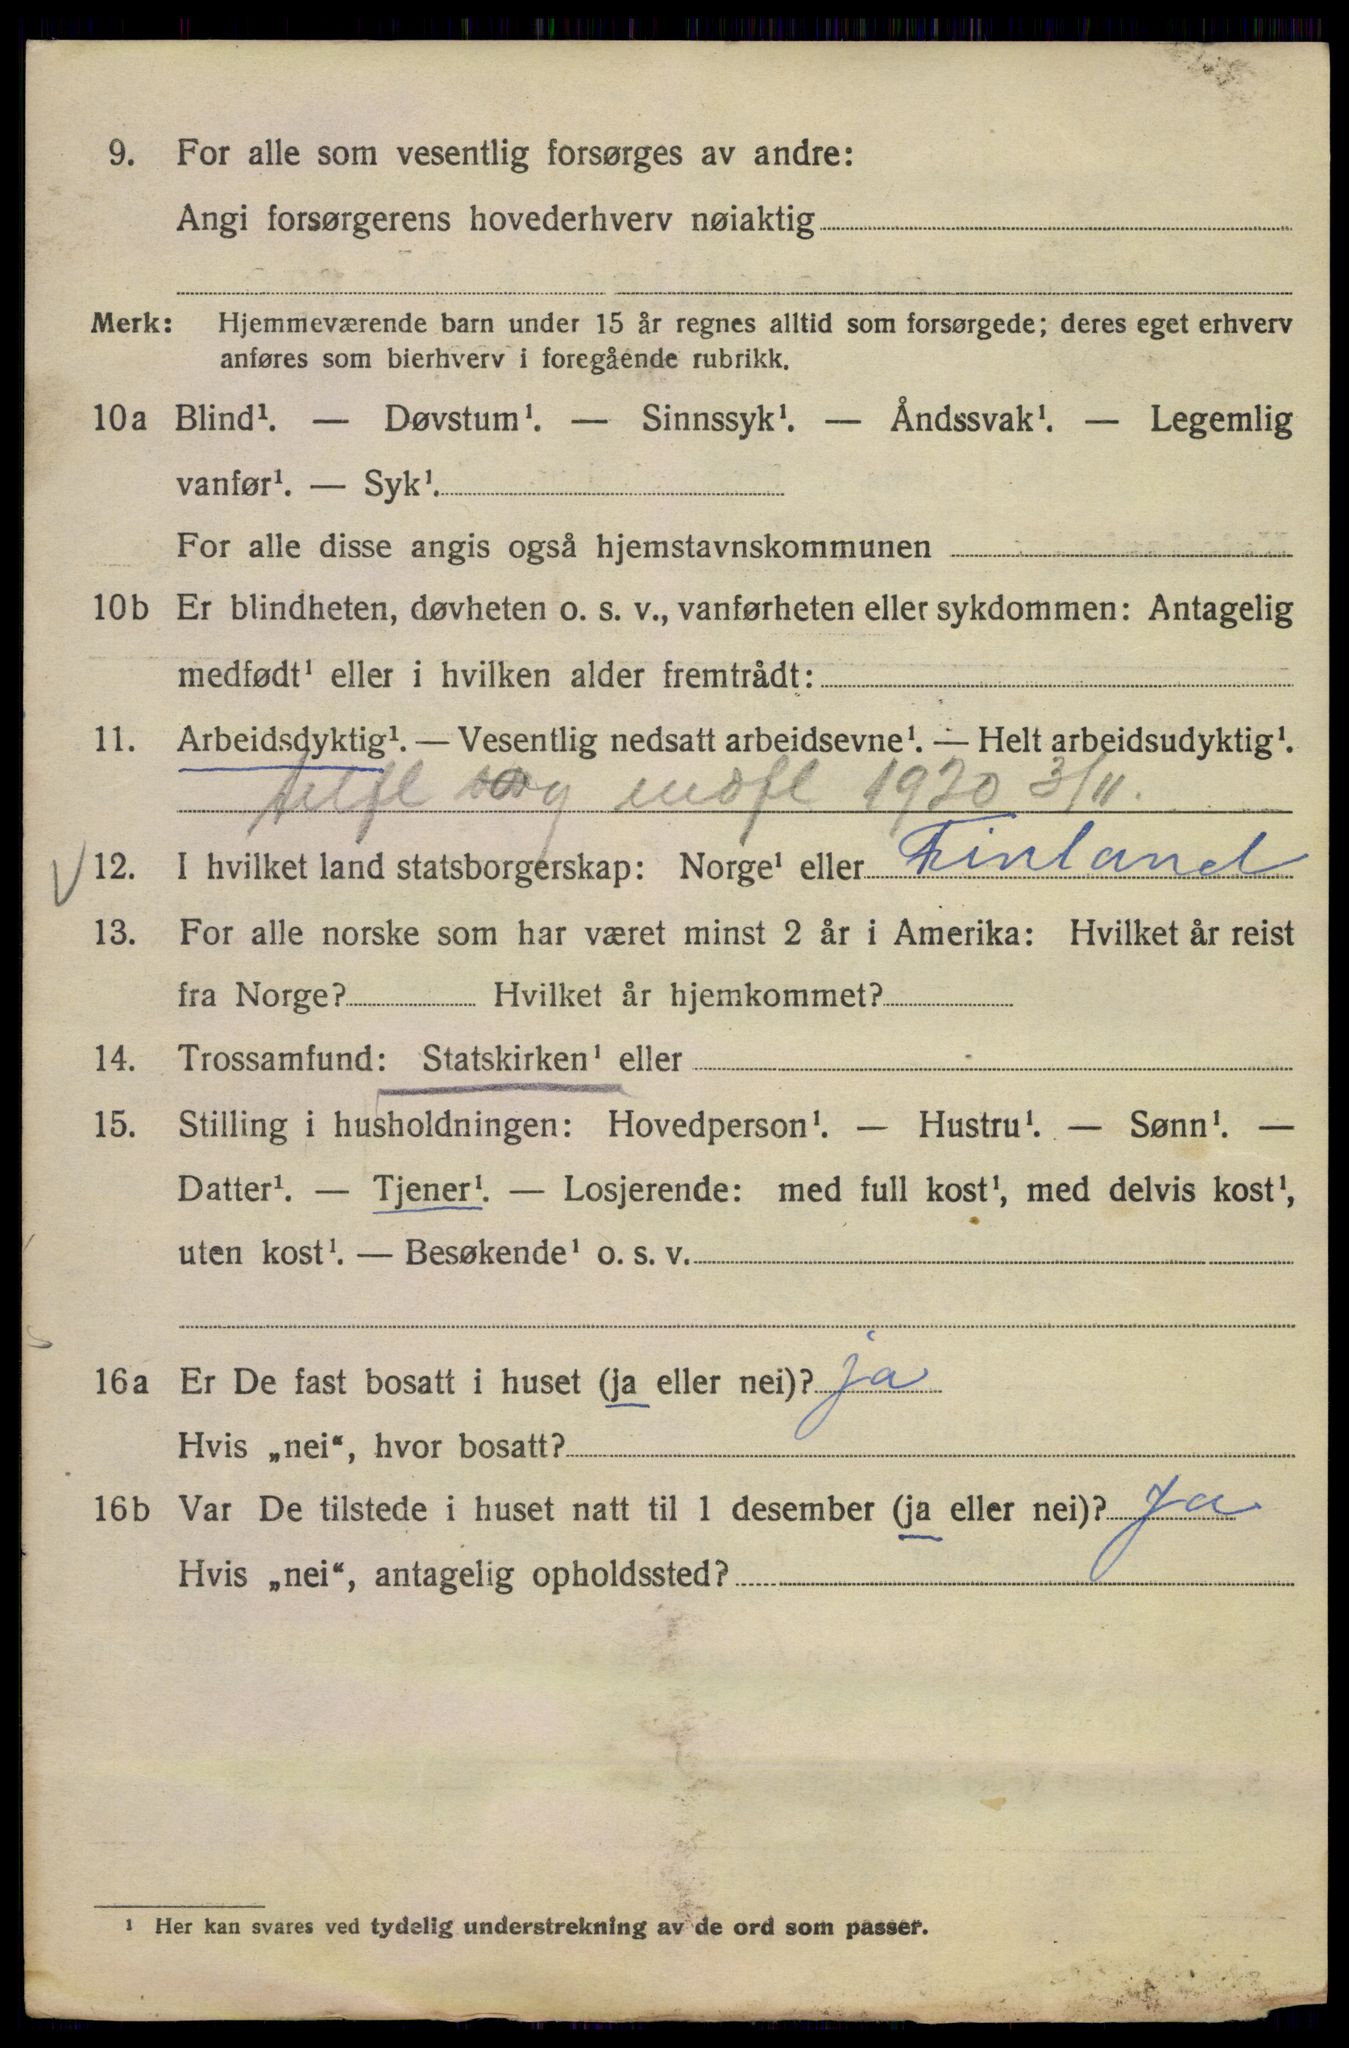 9. For alle som vesentlig forsørges av andre:
Angi forsørgerens hovederhverv nøiaktig
Merk: Hjemmeværende barn under 15 år regnes alltid som forsørgede; deres eget erhverv
anføres som bierhverv i foregående rubrikk.
10a Blind¹. — Døvstum¹. — Sinnssyk¹. — Åndssvak¹. — Legemlig
vanfør¹. — Syk¹.
For alle disse angis også hjemstavnskommunen
10b Er blindheten, døvheten o. s. v., vanførheten eller sykdommen: Antagelig
medfødt¹ eller i hvilken alder fremtrådt:
11. Arbeidsdyktig¹. — Vesentlig nedsatt arbeidsevne¹. — Helt arbeidsudyktig¹.
innfl 1920 3/11.
12. I hvilket land statsborgerskap: Norge¹ eller Finland
13. For alle norske som har været minst 2 år i Amerika: Hvilket år reist
fra Norge? Hvilket år hjemkommet?
14. Trossamfund: Statskirken¹ eller
15. Stilling i husholdningen: Hovedperson¹. — Hustru¹. — Sønn¹. —
Datter¹. — Tjener¹. — Losjerende: med full kost¹, med delvis kost¹,
uten kost¹. — Besøkende¹ o. s. v.
16a Er De fast bosatt i huset (ja eller nei)? ja
Hvis „nei“, hvor bosatt?
16b Var De tilstede i huset natt til 1 desember (ja eller nei)? Ja
Hvis „nei“, antagelig opholdssted?
¹ Her kan svares ved tydelig understrekning av de ord som passer.